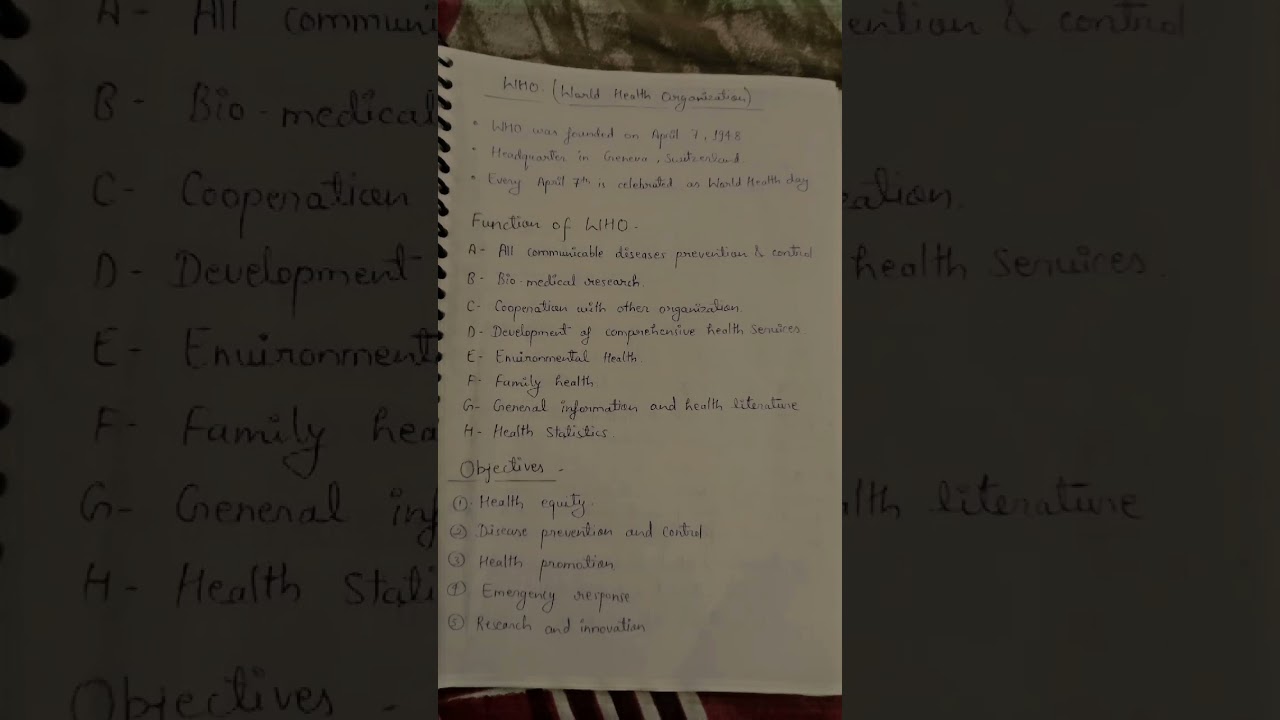 WHO. (World Health Organization)
• WHO was founded on April 7, 1948
• Headquarter in Geneva, Switzerland
• Every April 7th is celebrated as World Health day
Function of WHO -
A- All communicable diseases prevention & control
B- Bio-medical research.
C- Cooperation with other organization.
D- Development of comprehensive health services
E- Environmental Health.
F- Family health.
G- General information and health literature
H- Health Statistics.
Objectives -
① Health equity.
② Disease prevention and control
③ Health promotion
④ Emergency response
⑤ Research and innovation